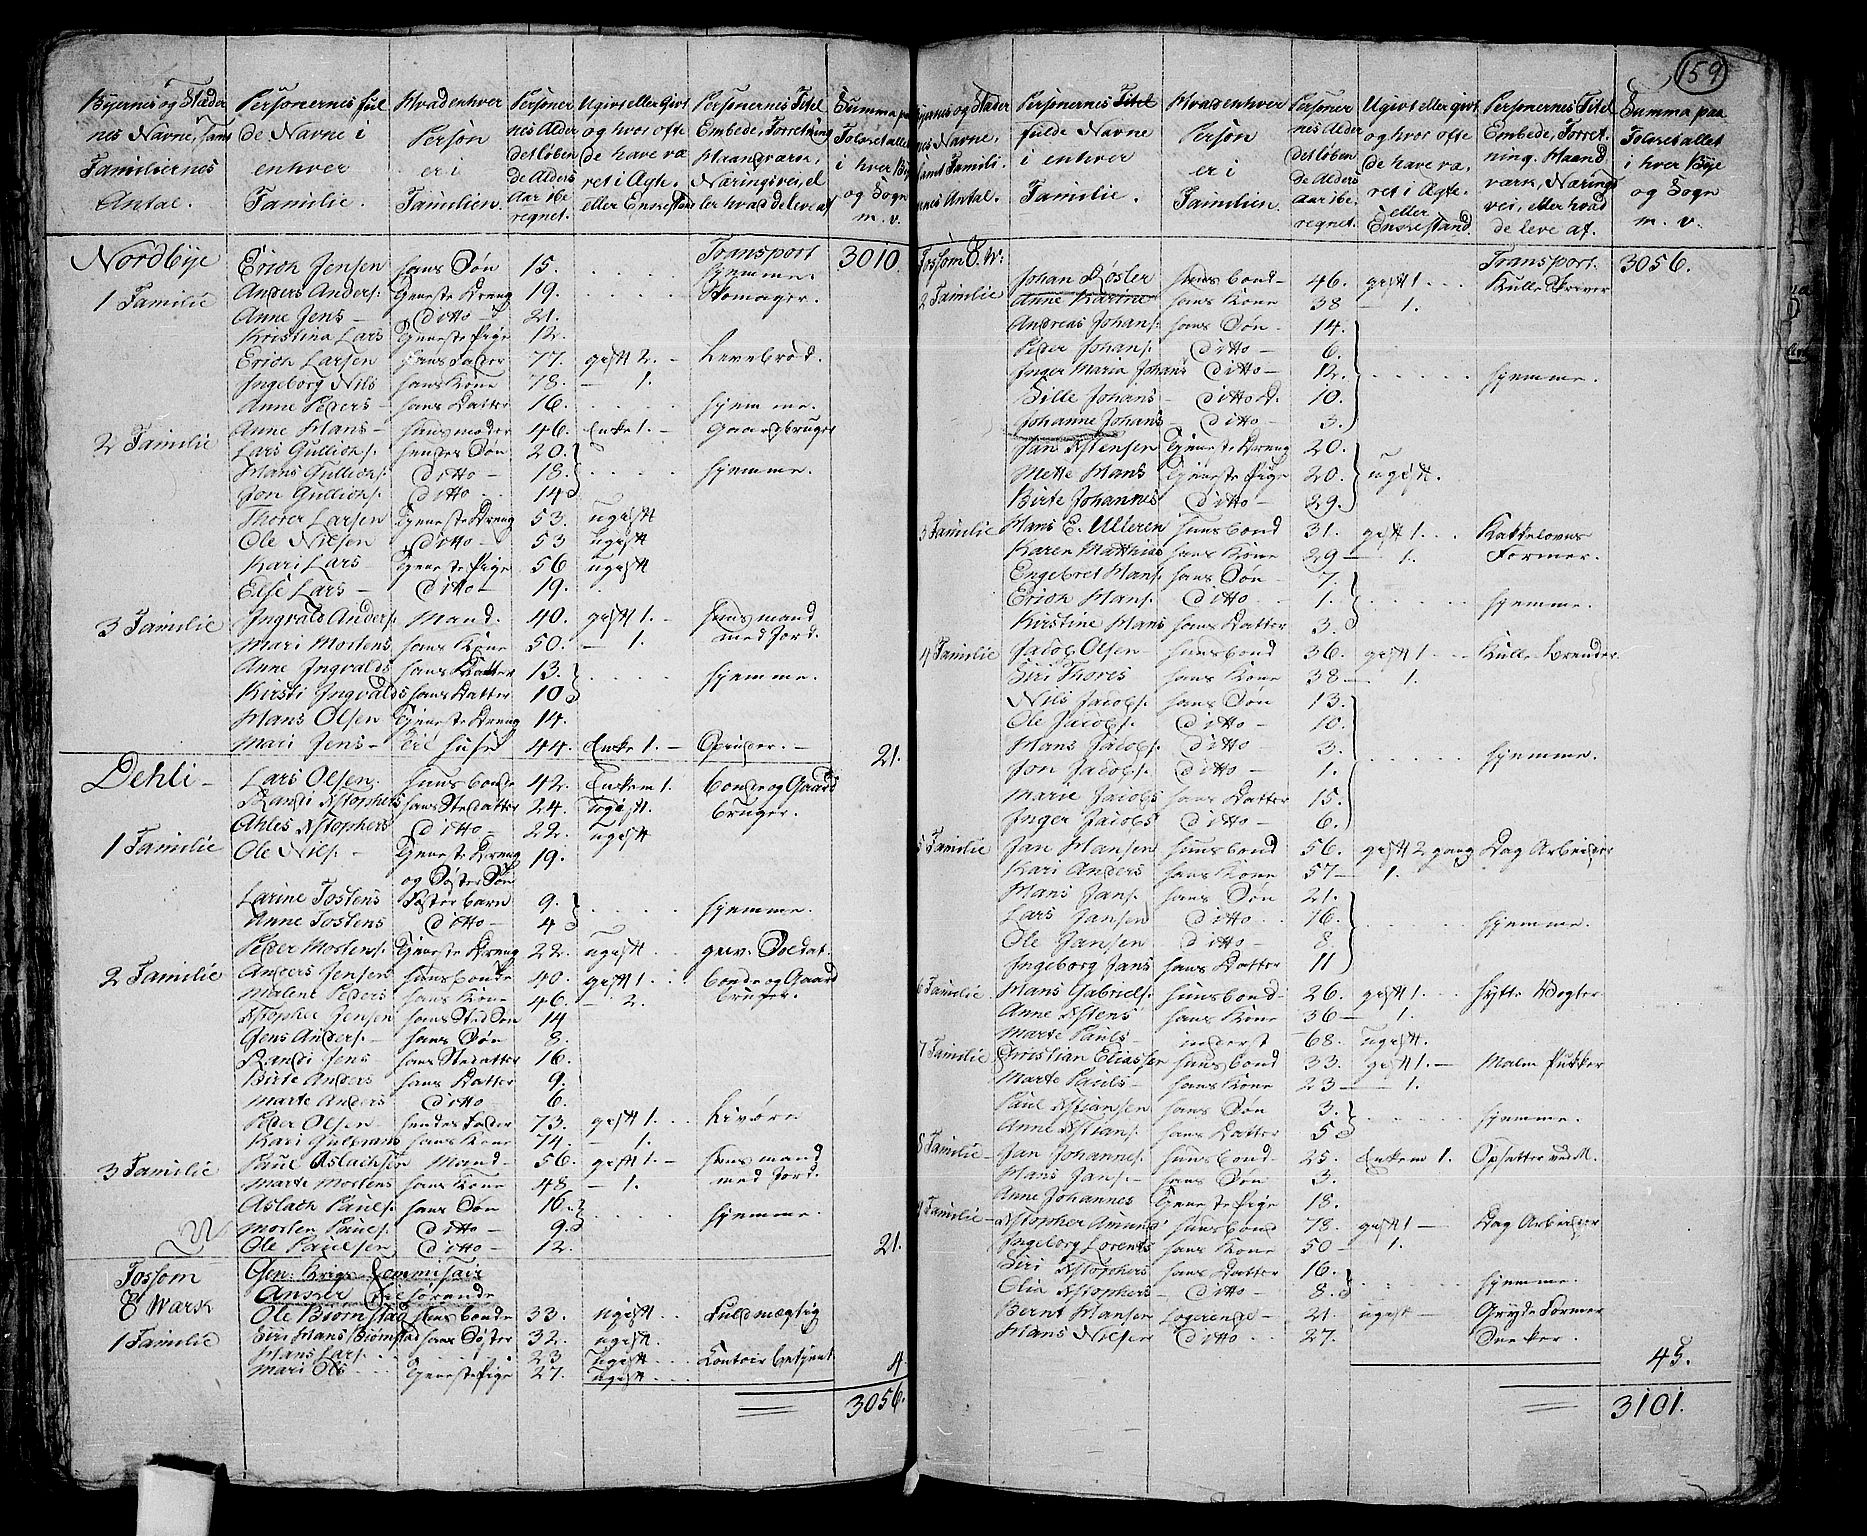 159
Byernes og Stæder nes Navne, samt Familiernes Antal.
Personernes ful de Navne i enhver Familie.
Hvad enhver Person er i Familien.
Personer nes Alder det løben de Alders Aar ibe regnet.
Ugivt eller givt og hvor ofte de have væ ret i Ægte. eller Enkestand
Personernes Titel Embede, Forretning Haandværk, Næringsvei, el ler hvad de leve af
Summa paa Folcketallet i hver Bye og Sogn m. v.
Nordbye Transport 3010.
Erich Jensen hans Søn 15. hjemme.
1 Familie Anders Anders. Tjeneste Dreng 19. Skomager.
Anne Jens ditto 21.
Kristina Lars Tjeneste Pige 12.
Erich Larsen hans Fader 77. gift 2. Levebrød.
Ingeborg Nils hans Kone 78. 1.
Anne Peders hans Datter 16. hjemme.
2 Familie Anne Hans huusmoder 46. Enke 1. Gaardbruger
Lars Gullichs. hendes Søn 20.
Hans Gullichs. ditto 18. hjemme.
Jon Gullichs. ditto 14
Thorer Larsen Tjeneste Dreng 53. ugift
Ole Nilsen ditto 53 ugift
Kari Lars Tjeneste Pige 56 ugift
Else Lars ditto 19.
3 Familie Ingvald Anders. Mand. 40. gift 1. huusmand
Mari Mortens hans Kone 50. 1. med Jord.
Anne Ingvalds hans Datter 13. hjemme.
Kirsti Ingvalds hans Datter 10
Hans Olsen Tjeneste Dreng 14.
Mari Jens til huse 44. Enke 1. Spinder. 21.
Dehli Lars Olsen. huusbonde 42. Enkem 1. bonde og Gaard
Randi Kstophers hans Stedatter 24. ugift. bruger.
Ahles Kstophers ditto 22. ugift
1 Familie Ole Nils. Tjeneste Dreng 19.
og Søster Søn
Larine Tostens Søster barn 9. hjemme.
Anne Tostens ditto 4
Peder Mortens. Tjeneste Dreng 22. ugift. gev. Soldat.
2 Familie Anders Jensen huusbonde 40. gift 1. bonde og Gaard
Malene Peders hans Kone 46. 2. bruger.
Kstopher Jensen hans Sted Søn 14
Jens Anders. hans Søn 8.
Randi Jens hans Stedatter 16.
Birte Anders hans Datter 9.
Marte Anders ditto 6.
Peder Olsen hendes Fader 73. gift 1. Livøre
Kari Gulbrans hans Kone 74. 1.
3 Familie Paul Aslachsen Mand 56. gift 1. huusmand
Marte Mortens hans Kone 48 1. med Jord.
Aslach Pauls. hans Søn 16. hjemme.
Morten Pauls. ditto 9.
Ole Paulsen ditto 12. 21.
Fossom Gen: Krigs Commisair
E Wærk Ancker tilhørende
Ole Biørnstad huusbonde 33. ugift. Fuldmægtig
1 Familie Siri Hans Biørnstad hans Søster 32. ugift.
Hans Lars. 23 ugift Contoir betjent
Mari Ols Tjeneste Pige 27. ugift 4
3056.
Byernes og Stæder nes Navne, samt Famili ernes Antal.
Personernes Titel fulde Navne i enhver Familie.
Hvad enhver Person er i Familien.
Personer nes Alder det løben de Alders Aar ibe regnet.
Ugivt eller givt og hvor ofte de have væ ret i Ægte eller Enkestand
Personernes Titel Embede, Forret ning. Haand værk, Nærings vei, eller hvad de leve af.
Summa paa Folcketallet i hver Bye og Sogn m. v.
Fossom E. W: Transport. 3056.
2 Familie Johan Røsler huusbond 46. gift 1. Kulle Skriver
Anne Karine hans Kone 38 1.
Andreas Johans. hans Søn 14.
Peder Johans. ditto 6.
Inger Maria Johans ditto 12. hjemme.
Sille Johans ditto 10.
Johanne Johans ditto 3.
Jan Kstensen Tjeneste Dreng 20.
Mette Hans Tjeneste Pige 20. ugift.
Birte Johannes ditto 29.
3 Familie Hans E. Ulleren huusbond 31. gift 1. Kakkelovns
Karen Mathias hans Kone 29 1. Former.
Engebret Hans. hans Søn 7.
Erich Hans. ditto 1. hjemme.
Kirstine Hans hans Datter 3.
4 Familie Jacob Olsen huusbond 36. gift 1. Kulle brender
Siri Thores hans Kone 38 1.
Nils Jacobs. hans Søn 13.
Ole Jacobs. ditto 10.
Hans Jacobs. ditto 3. hjemme.
Jon Jacobs. ditto 1.
Marie Jacobs hans Datter 15.
Inger Jacobs ditto 6.
5 Familie Jan Hansen huusbond 56. gift 2 gang Dag Arbeider
Kari Anders hans Kone 57 1.
Hans Jans. hans Søn 21.
Lars Jansen ditto 16. hjemme.
Ole Jansen ditto 8
Ingeborg Jans hans Datter 11
6 Familie Hans Gabriels. huusbond 26. gift 1. Hytte Vogter
Anne Kstens hans Kone 36 1.
Marte Pauls inderst 68. ugift.
7 Familie Christian Eliassen huusbond 33. gift 1. Malm Pukker
Marte Pauls hans Kone 23 1.
Paul Kstiansen hans Søn 3. hjemme.
Anne Kstians. hans Datter 5
8 Familie Jan Johannes. huusbond 25. Enkem 1. Opsatter ved M.
Hans Jans. hans Søn 3.
Anne Johannes Tjeneste Pige 18.
9 Familie Kstopher Amund. huusbond 78. gift 1 Dag Arbeider
Ingeborg Lorents hans Kone 50 1.
Siri Kstophers hans Datter 16. hjemme.
Olia Kstophers ditto 8.
Bernt Hansen Logerende 21. ugift Gryde Former
Hans Nilsen ditto 27. Snekker.
45.
3101.